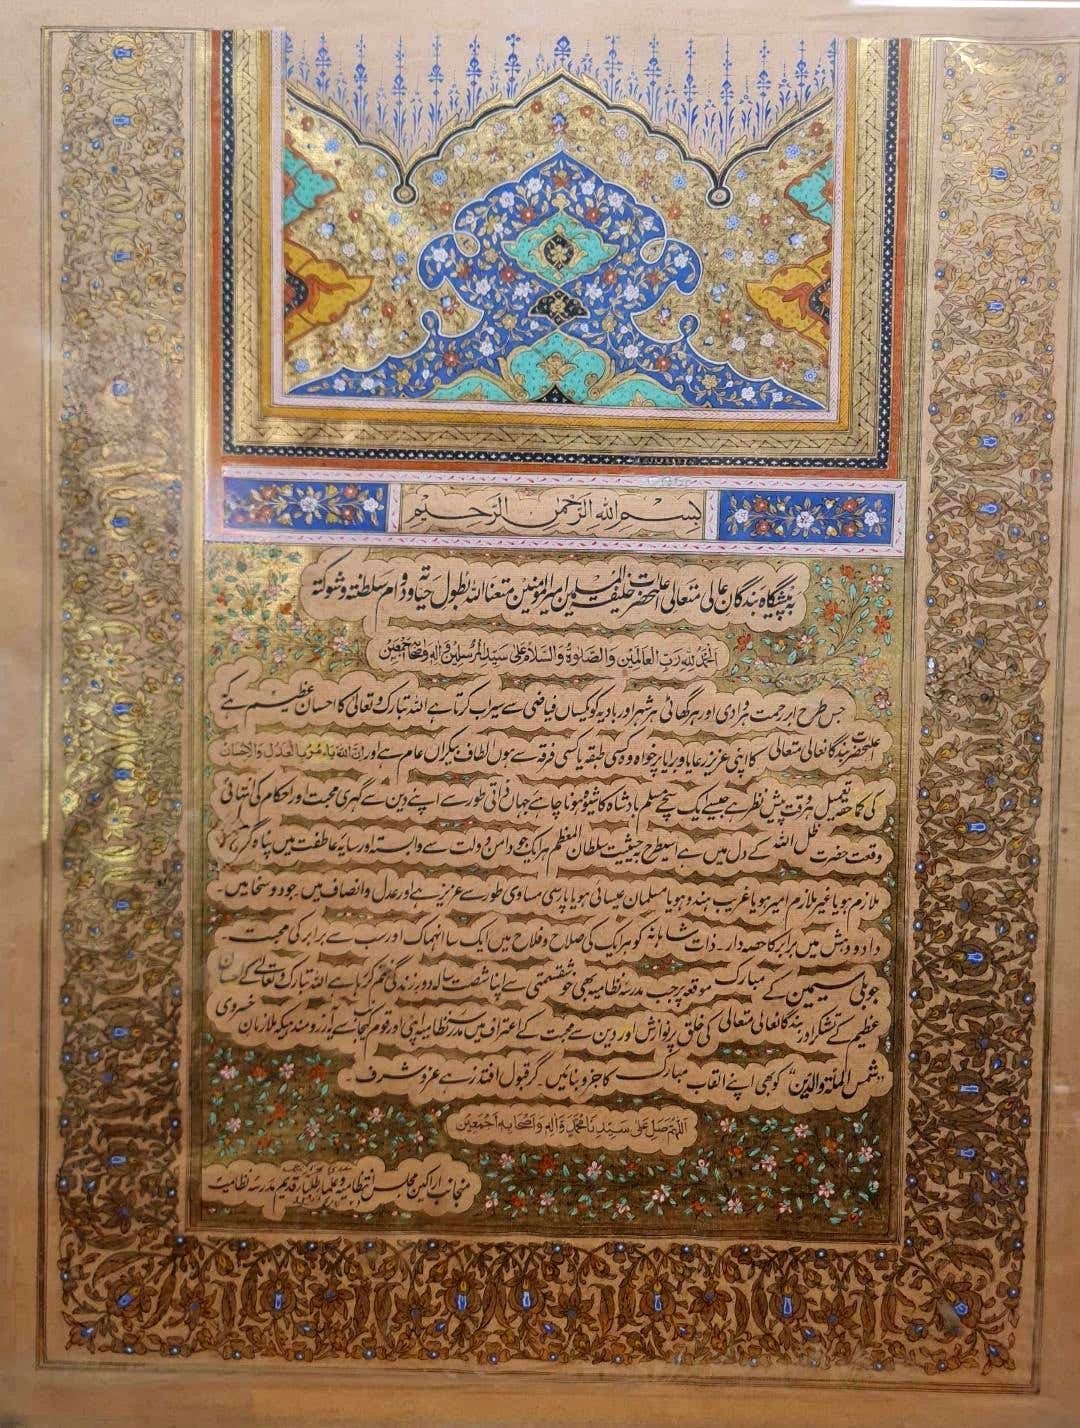 بسم الله الرحمن الرحيم
بہ پیشگاہ بندگان عالی متعالی اعلیحضرت خلیفۃ المسلمین امیر المومنین متعنا اللہ بطول حیاتہ و دوام سلطنتہ و شوکتہ
الحمد لله رب العالمين والصلوة والسلام على سيد المرسلين واله وصحبه اجمعين
جس طرح ابر رحمت ہر وادی اور ہر گھاٹی ہر شہر اور بادیہ کو یکساں فیاضی سے سیراب کرتا ہے اللہ تبارک و تعالی کا احسان عظیم ہے کہ
اعلیحضرت بندگانعالی متعالی کا اپنی عزیز رعایا و برایا پر خواہ وہ کسی طبقہ یا کسی فرقہ سے ہوں الطاف بیکراں عام ہے اور ان الله يأمر بالعدل والاحسان
کی تعمیل ہر وقت پیش نظر ہے جیسے ایک سچے مسلم بادشاہ کا شیوہ ہونا چاہے جہاں ذاتی طور سے اپنے دین سے گہری محبت اور احکام کی انتہائی
وقعت حضرت ظل اللہ کے دل میں ہے اسیطرح بحیثیت سلطان المعظم ہر ایک جو دامن دولت سے وابستہ اور سایہ عاطفت میں پناہ گزیں
ملازم ہو یا غیر ملازم امیر ہو یا غریب ہندو ہو یا مسلمان عیسائی ہو یا پارسی مساوی طور سے عزیز ہے اور عدل و انصاف میں۔ جود و سخا میں۔
داد و دہش میں برابر کا حصہ دار۔ ذات شاہانہ کو ہر ایک کی صلاح و فلاح میں ایک سا انہماک اور سب سے برابر کی محبت۔
جوبلی سیمین کے مبارک موقعہ پر جب مدرسہ نظامیہ بھی خوشقسمتی سے اپنا شصت سالہ دور زندگی ختم کر رہا ہے اللہ تبارک و تعالے کے احسان
عظیم کے تشکر اور بندگانعالی متعالی کی خلق پر نوازش اور دین سے محبت کے اعتراف میں مدرسہ نظامیہ اپنی اور قوم کیجانب سے آرزومند ہیکہ ملازمان خسروی
"شمس الملۃ والدین" کو بھی اپنے القاب مبارک کا جزو بنائیں۔ گر قبول افتد زہے عز و شرف۔
اللهم صل على سيدنا محمد واله واصحابه اجمعين
منجانب اراکین مجلس انتظامیہ و علما و طلباء قدیم مدرسہ نظامیہ